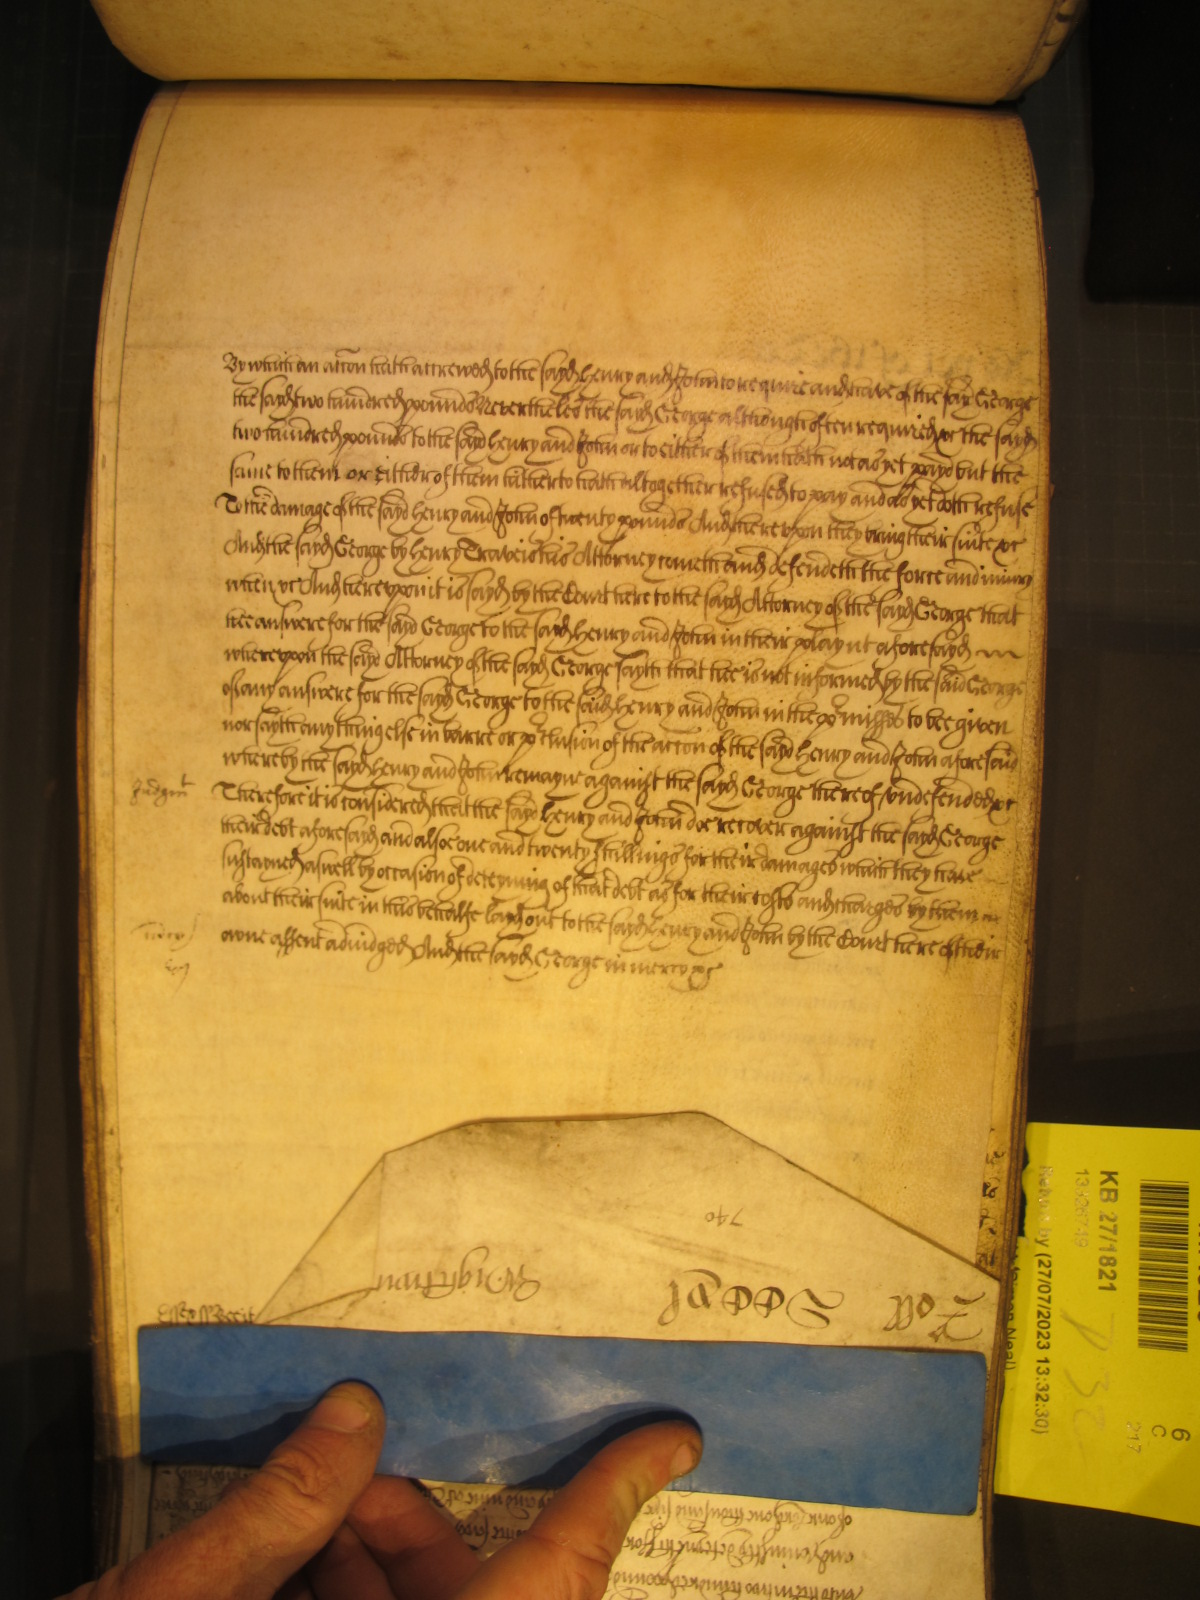 By which an accon hath accrewed to the sayd Henry and John to require and have of the say George
the sayd two hundred pounds Neverthelesse the sayd George although often required &c the sayd
two hundred pounds to the sayd Henry and John or to either of them hath not as yet payd but the
same to them or either of them hitherto hath altogether refused to pay and as yet doth refuse
To the damage of the sayd Henry and John of twenty pounds And thereupon they bring their suite &c
And the sayd George by Henry Travers his Attorney cometh and defendeth the force and iniury
when &c And thereupon it is sayd by the Court here to the sayd Attorney of the sayd George that
hee answere for the sayd George to the sayd Henry and John in their playnt aforesayd
whereupon the sayd Attorney of the sayd George sayth that hee is not informed by the said George
of any answere for the sayd George to the said Henry and John in the p'misses to bee given
nor sayth any thing else in barre or p'clusion of the accon of the sayd Henry and John aforesaid
whereby the sayd Henry and John remayne against the sayd George thereof undefended &c
Judgmt
Therefore it is considered that the sayd Henry and John doe recover against the sayd George
their debt aforesayd and alsoe one and twenty shillings for their damages which they have
susteyned aswell by occasion of deteyning of that debt as for their costs and charges by them
about their suite in this behalfe layd out to the sayd Henry and John by the Court here of their
mercy
owne assent adiudged And the sayd George in mercy &c
740
Wightman
Roll
KB 27/1821
13326749
(27/07/2023 13:32:30)
6
C
217